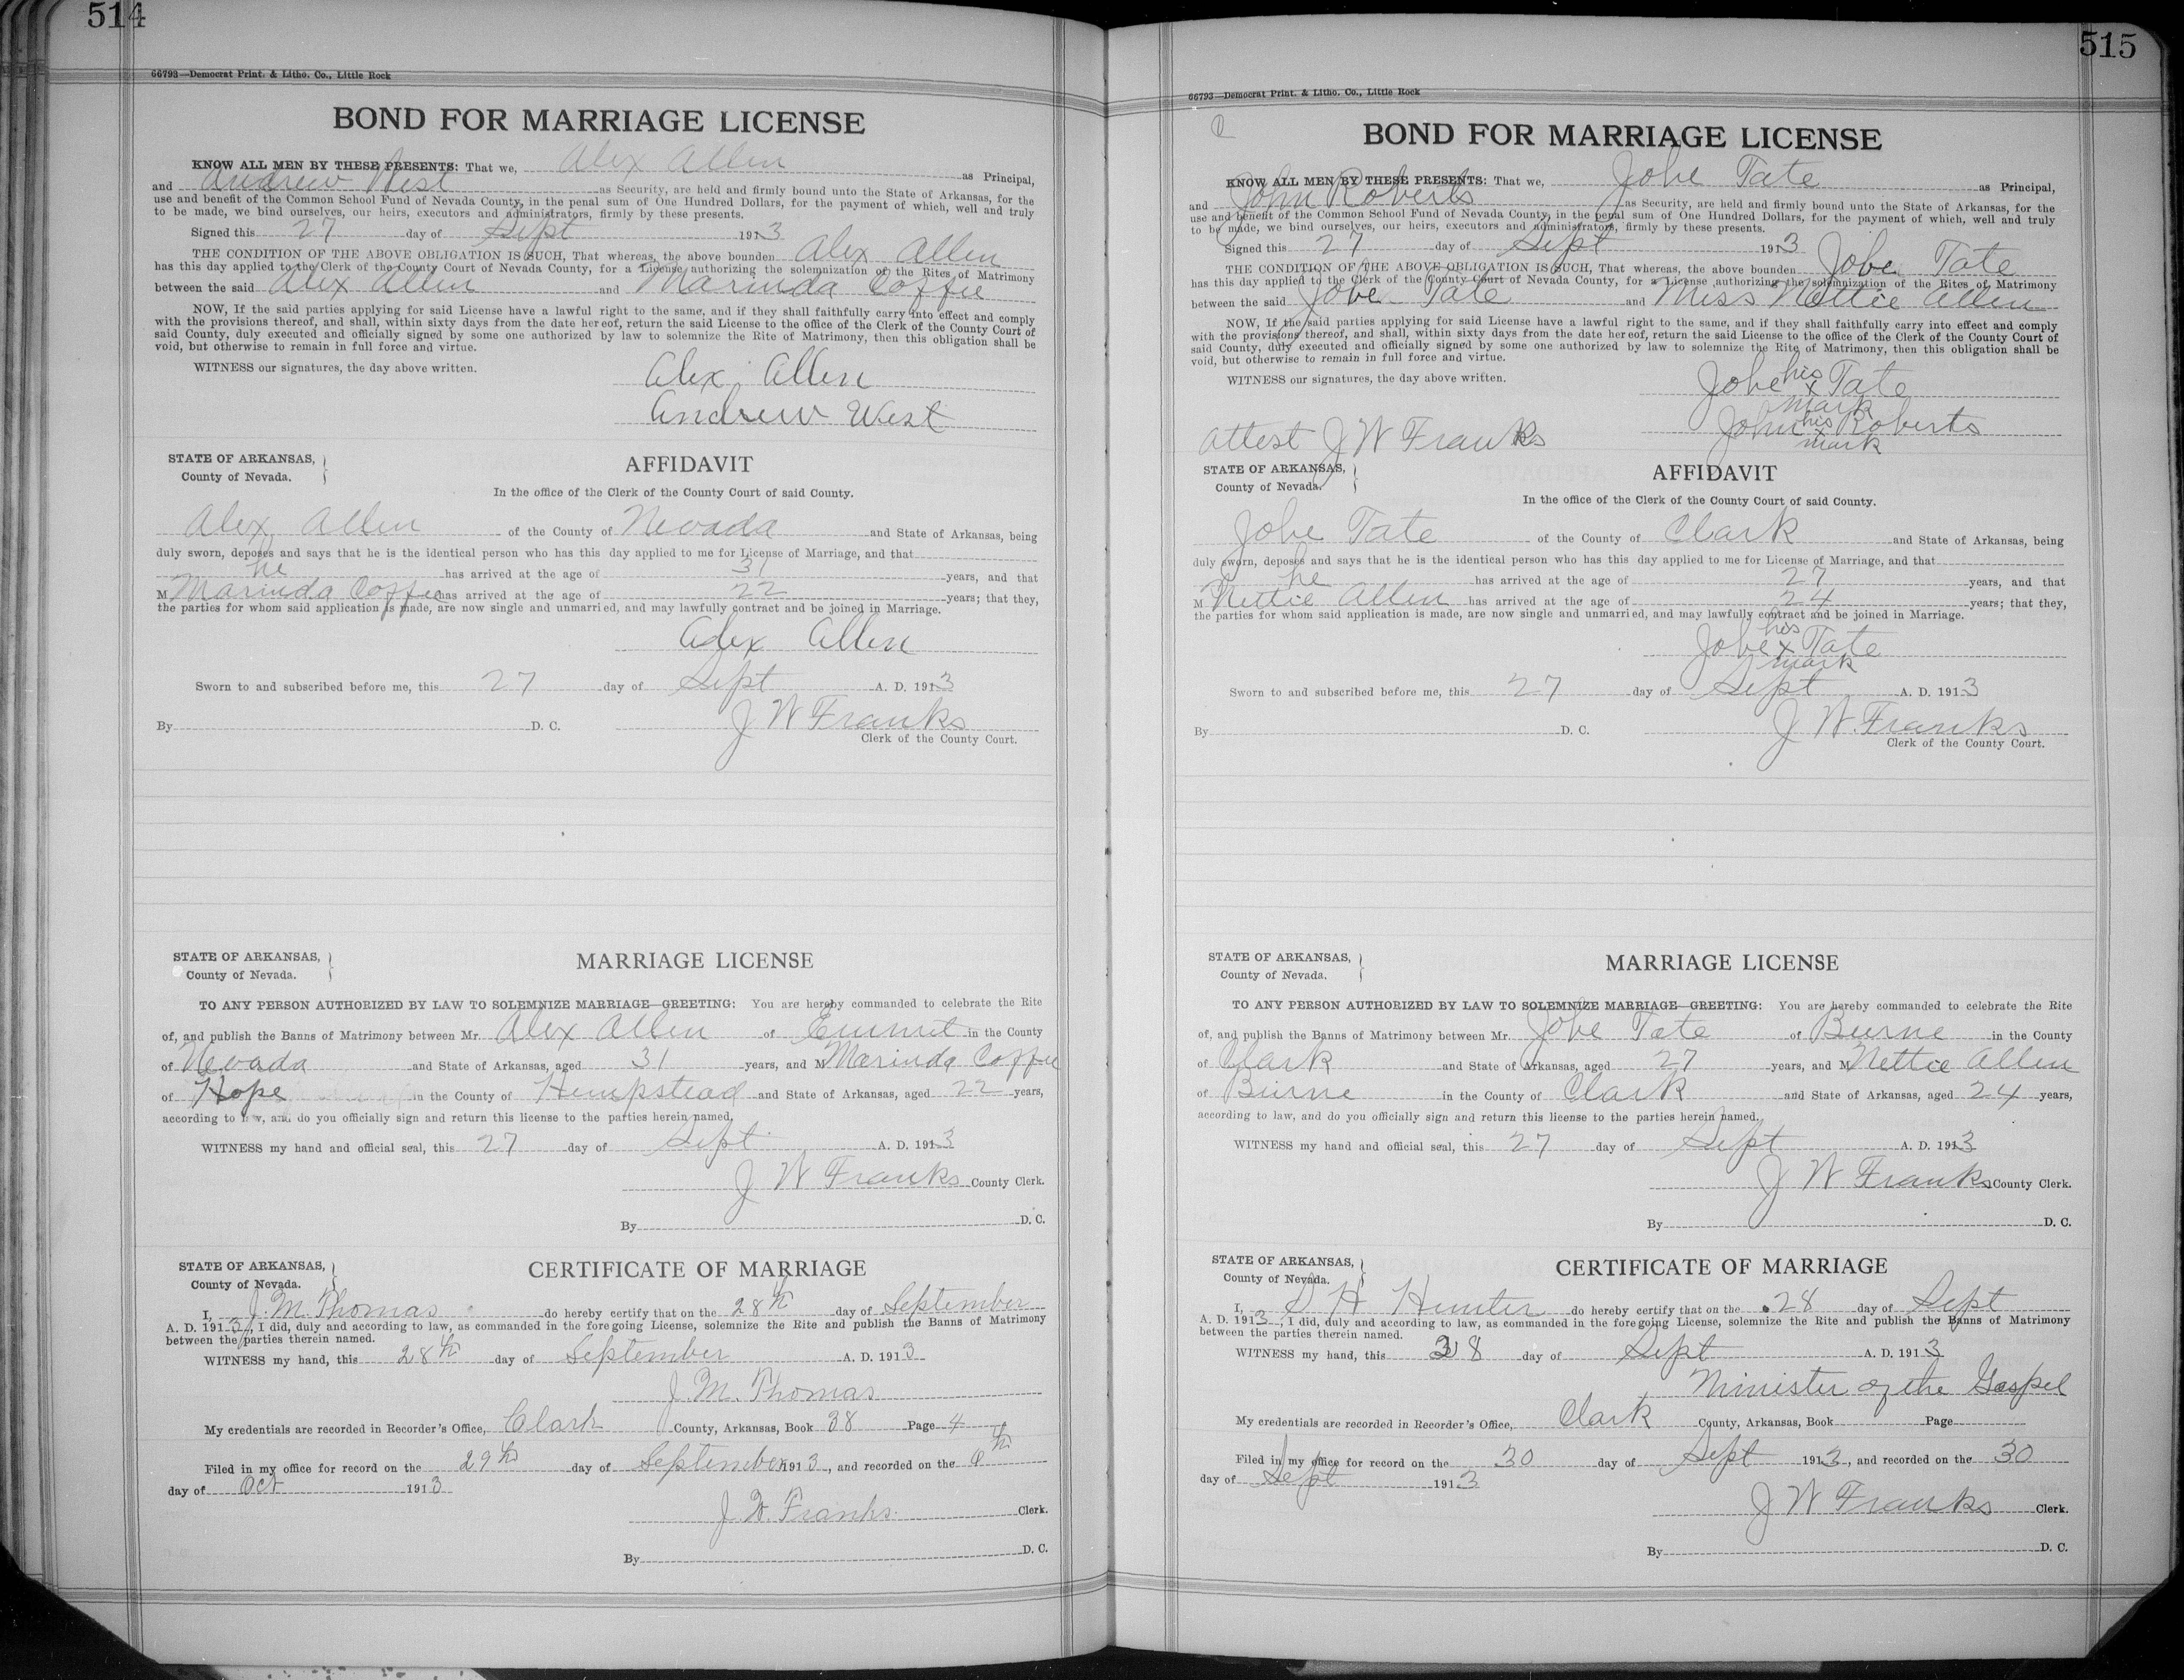 514
66793—Democrat Print. & Litho. Co., Little Rock
BOND FOR MARRIAGE LICENSE
KNOW ALL MEN BY THESE PRESENTS: That we, Alex Allen as Principal,
and Andrew West as Security, are held and firmly bound unto the State of Arkansas, for the
use and benefit of the Common School Fund of Nevada County, in the penal sum of One Hundred Dollars, for the payment of which, well and truly
to be made, we bind ourselves, our heirs, executors and administrators, firmly by these presents.
Signed this 27 day of Sept 1913
THE CONDITION OF THE ABOVE OBLIGATION IS SUCH, That whereas, the above bounden Alex Allen
has this day applied to the Clerk of the County Court of Nevada County, for a License authorizing the solemnization of the Rites of Matrimony
between the said Alex Allen and Marinda Coffie
NOW, If the said parties applying for said License have a lawful right to the same, and if they shall faithfully carry into effect and comply
with the provisions thereof, and shall, within sixty days from the date hereof, return the said License to the office of the Clerk of the County Court of
said County, duly executed and officially signed by some one authorized by law to solemnize the Rite of Matrimony, then this obligation shall be
void, but otherwise to remain in full force and virtue.
WITNESS our signatures, the day above written.
Alex Allen
Andrew West
STATE OF ARKANSAS,
County of Nevada.
AFFIDAVIT
In the office of the Clerk of the County Court of said County.
Alex Allen of the County of Nevada and State of Arkansas, being
duly sworn, deposes and says that he is the identical person who has this day applied to me for License of Marriage, and that
he has arrived at the age of 31 years, and that
M Marinda Coffie has arrived at the age of 22 years; that they,
the parties for whom said application is made, are now single and unmarried, and may lawfully contract and be joined in Marriage.
Alex Allen
Sworn to and subscribed before me, this 27 day of Sept A. D. 1913
By D. C. J W Franks
Clerk of the County Court.
STATE OF ARKANSAS,
County of Nevada.
MARRIAGE LICENSE
TO ANY PERSON AUTHORIZED BY LAW TO SOLEMNIZE MARRIAGE—GREETING: You are hereby commanded to celebrate the Rite
of, and publish the Banns of Matrimony between Mr. Alex Allen of Emmet in the County
of Nevada and State of Arkansas, aged 31 years, and M Marinda Coffie
of Hope in the County of Hempstead and State of Arkansas, aged 22 years,
according to law, and do you officially sign and return this license to the parties herein named.
WITNESS my hand and official seal, this 27 day of Sept A. D. 1913
J W Franks County Clerk.
By D. C.
STATE OF ARKANSAS,
County of Nevada.
CERTIFICATE OF MARRIAGE
I, J. M. Thomas do hereby certify that on the 28th day of September
A. D. 1913, I did, duly and according to law, as commanded in the foregoing License, solemnize the Rite and publish the Banns of Matrimony
between the parties therein named.
WITNESS my hand, this 28th day of September A. D. 1913
J. M. Thomas
My credentials are recorded in Recorder's Office, Clark County, Arkansas, Book 38 Page 4
Filed in my office for record on the 29th day of September 1913, and recorded on the
day of Oct 1913
J. W. Franks Clerk.
By D. C.
515
66793—Democrat Print. & Litho. Co., Little Rock
BOND FOR MARRIAGE LICENSE
KNOW ALL MEN BY THESE PRESENTS: That we, Jobe Tate as Principal,
and John Roberts as Security, are held and firmly bound unto the State of Arkansas, for the
use and benefit of the Common School Fund of Nevada County, in the penal sum of One Hundred Dollars, for the payment of which, well and truly
to be made, we bind ourselves, our heirs, executors and administrators, firmly by these presents.
Signed this 27 day of Sept 1913
THE CONDITION OF THE ABOVE OBLIGATION IS SUCH, That whereas, the above bounden Jobe Tate
has this day applied to the Clerk of the County Court of Nevada County, for a License authorizing the solemnization of the Rites of Matrimony
between the said Jobe Tate and Miss Nettie Allen
NOW, If the said parties applying for said License have a lawful right to the same, and if they shall faithfully carry into effect and comply
with the provisions thereof, and shall, within sixty days from the date hereof, return the said License to the office of the Clerk of the County Court of
said County, duly executed and officially signed by some one authorized by law to solemnize the Rite of Matrimony, then this obligation shall be
void, but otherwise to remain in full force and virtue.
WITNESS our signatures, the day above written.
Jobe his x mark Tate
John his x mark Roberts
attest J W Franks
STATE OF ARKANSAS,
County of Nevada.
AFFIDAVIT
In the office of the Clerk of the County Court of said County.
Jobe Tate of the County of Clark and State of Arkansas, being
duly sworn, deposes and says that he is the identical person who has this day applied to me for License of Marriage, and that
he has arrived at the age of 27 years, and that
M Nettie Allen has arrived at the age of 24 years; that they,
the parties for whom said application is made, are now single and unmarried, and may lawfully contract and be joined in Marriage.
Jobe his x mark Tate
Sworn to and subscribed before me, this 27 day of Sept A. D. 1913
By D. C. J W. Franks
Clerk of the County Court.
STATE OF ARKANSAS,
County of Nevada.
MARRIAGE LICENSE
TO ANY PERSON AUTHORIZED BY LAW TO SOLEMNIZE MARRIAGE—GREETING: You are hereby commanded to celebrate the Rite
of, and publish the Banns of Matrimony between Mr. Jobe Tate of Burne in the County
of Clark and State of Arkansas, aged 27 years, and M Nettie Allen
of Burne in the County of Clark and State of Arkansas, aged 24 years,
according to law, and do you officially sign and return this license to the parties herein named.
WITNESS my hand and official seal, this 27 day of Sept A. D. 1913
J W Franks County Clerk.
By D. C.
STATE OF ARKANSAS,
County of Nevada.
CERTIFICATE OF MARRIAGE
I, S H Hunter do hereby certify that on the 28 day of Sept
A. D. 1913, I did, duly and according to law, as commanded in the foregoing License, solemnize the Rite and publish the Banns of Matrimony
between the parties therein named.
WITNESS my hand, this 28 day of Sept A. D. 1913
Minister of the Gospel
My credentials are recorded in Recorder's Office, Clark County, Arkansas, Book Page
Filed in my office for record on the 30 day of Sept 1913, and recorded on the 30
day of Sept 1913
J W Franks Clerk.
By D. C.